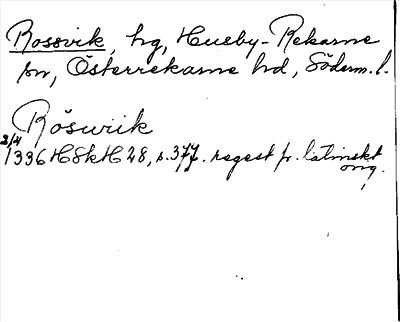 Rossvik, hg, Husby-Rekarne
sn, Österrekarne hd, Söderm. l.
Röswiik
2/4
1336 HSkH 28, s. 377. regest fr. latinskt
orig.